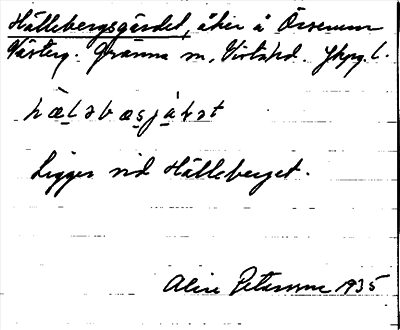 Hällebergsgärdet, åker å Örserum
Västerg. Gränna sn. Vista hd. Jkpg. l.
hælabæsjäɫət
Ligger vid Hälleberget.
Alice Petersson 1935